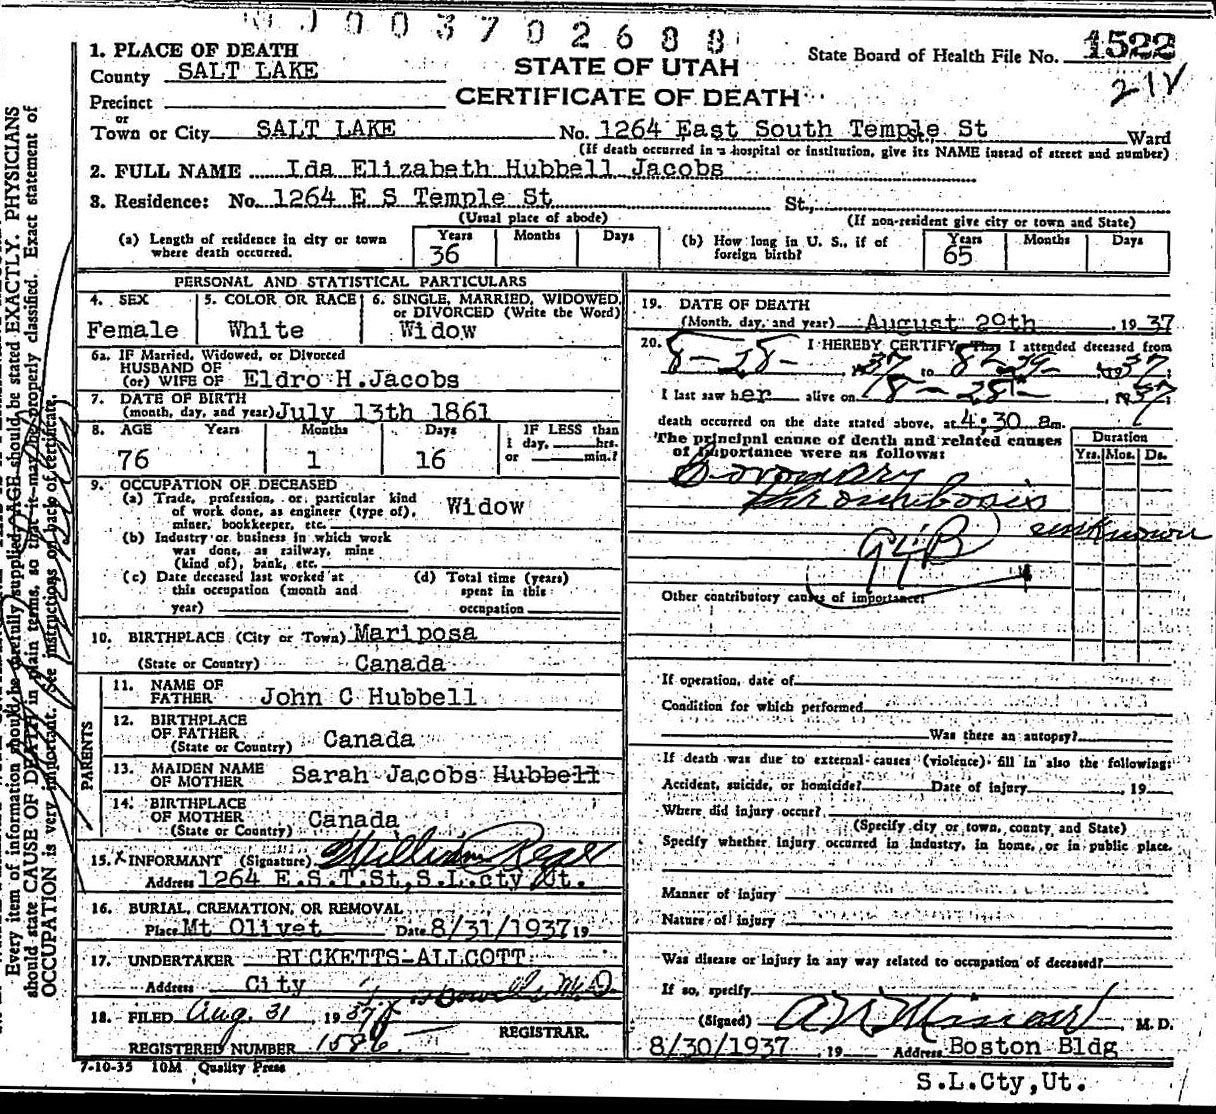 0003702688
1. PLACE OF DEATH
County SALT LAKE
Precinct
or
Town or City SALT LAKE
STATE OF UTAH
CERTIFICATE OF DEATH
State Board of Health File No. 1522
21V
No. 1264 East South Temple St St., Ward
(If death occurred in a hospital or institution, give its NAME instead of street and number)
2. FULL NAME Ida Elizabeth Hubbell Jacobs
3. Residence: No. 1264 E S Temple St St.,
(Usual place of abode) (If non-resident give city or town and State)
(a) Length of residence in city or town where death occurred. Years 36 Months Days
(b) How long in U. S., if of foreign birth? Years 65 Months Days
PERSONAL AND STATISTICAL PARTICULARS
4. SEX Female
5. COLOR OR RACE White
6. SINGLE, MARRIED, WIDOWED, or DIVORCED (Write the Word) Widow
6a. IF Married, Widowed, or Divorced
HUSBAND OF
(or) WIFE OF Eldro H. Jacobs
7. DATE OF BIRTH
(month, day, and year) July 13th 1861
8. AGE Years Months Days IF LESS than
1 day, hrs.
or min.?
76 1 16
9. OCCUPATION OF DECEASED
(a) Trade, profession, or particular kind
of work done, as engineer (type of),
miner, bookkeeper, etc. Widow
(b) Industry or business in which work
was done, as railway, mine
(kind of), bank, etc.
(c) Date deceased last worked at
this occupation (month and
year)
(d) Total time (years)
spent in this
occupation
10. BIRTHPLACE (City or Town) Mariposa
(State or Country) Canada
PARENTS
11. NAME OF
FATHER John C Hubbell
12. BIRTHPLACE
OF FATHER
(State or Country) Canada
13. MAIDEN NAME
OF MOTHER Sarah Jacobs Hubbell
14. BIRTHPLACE
OF MOTHER
(State or Country) Canada
15. X INFORMANT (Signature) William
Address 1264 E.S.T.St, S.L.cty, Ut.
16. BURIAL, CREMATION, OR REMOVAL
Place Mt Olivet Date 8/31/1937 19
17. UNDERTAKER RICKETTS-ALLCOTT
Address City
M.D.
18. FILED Aug. 31 1937
REGISTRAR.
REGISTERED NUMBER 1586
7-10-35 10M Quality Press
19. DATE OF DEATH
(Month, day, and year) August 29th, 1937
20. I HEREBY CERTIFY, That I attended deceased from
8-28- 1937 to 8-29- 1937
I last saw her alive on 8-28- 1937
death occurred on the date stated above, at 4:30 am.
The principal cause of death and related causes
of importance were as follows:
Duration
Yrs. Mos. Ds.
Coronary
thrombosis
unknown
Other contributory causes of importance:
If operation, date of
Condition for which performed
Was there an autopsy?
If death was due to external causes (violence) fill in also the following:
Accident, suicide, or homicide? Date of injury , 19
Where did injury occur?
(Specify city or town, county and State)
Specify whether injury occurred in industry, in home, or in public place.
Manner of injury
Nature of injury
Was disease or injury in any way related to occupation of deceased?
If so, specify
(Signed) M. D.
8/30/1937 , 19 Address Boston Bldg
S.L.Cty, Ut.
Every item of information should be carefully supplied. AGE should be stated EXACTLY. PHYSICIANS
should state CAUSE OF DEATH in plain terms, so that it may be properly classified. Exact statement of
OCCUPATION is very important. See instructions on back of certificate.